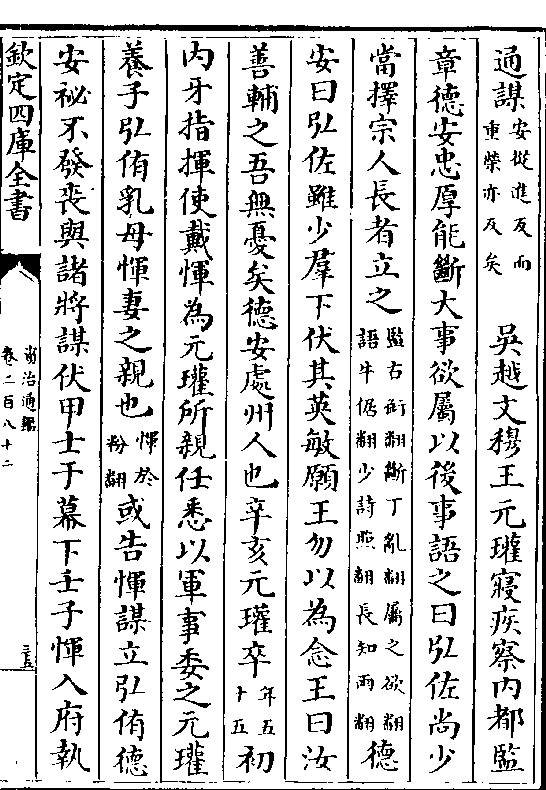 通謀安從進反而重榮亦反矣　吳越文穆王元瓘寢疾察内都監
章德安忠厚能斷大事欲屬以後事語之曰弘佐尚少
當擇宗人長者立之監右銜翻斷丁亂翻屬之欲翻語牛倨翻少詩照翻長知兩翻德
安曰弘佐雖少羣下伏其英敏願王勿以為念王曰汝
善輔之吾無憂矣德安處州人也辛亥元瓘卒年五十五初
内牙指揮使戴惲為元瓘所親任悉以軍事委之元瓘
養子弘侑乳母惲妻之親也惲於粉翻或告惲謀立弘侑德
安祕不發喪與諸將謀伏甲士于幕下壬子惲入府執
欽定四庫全書
資治通鑑
卷二百八十二